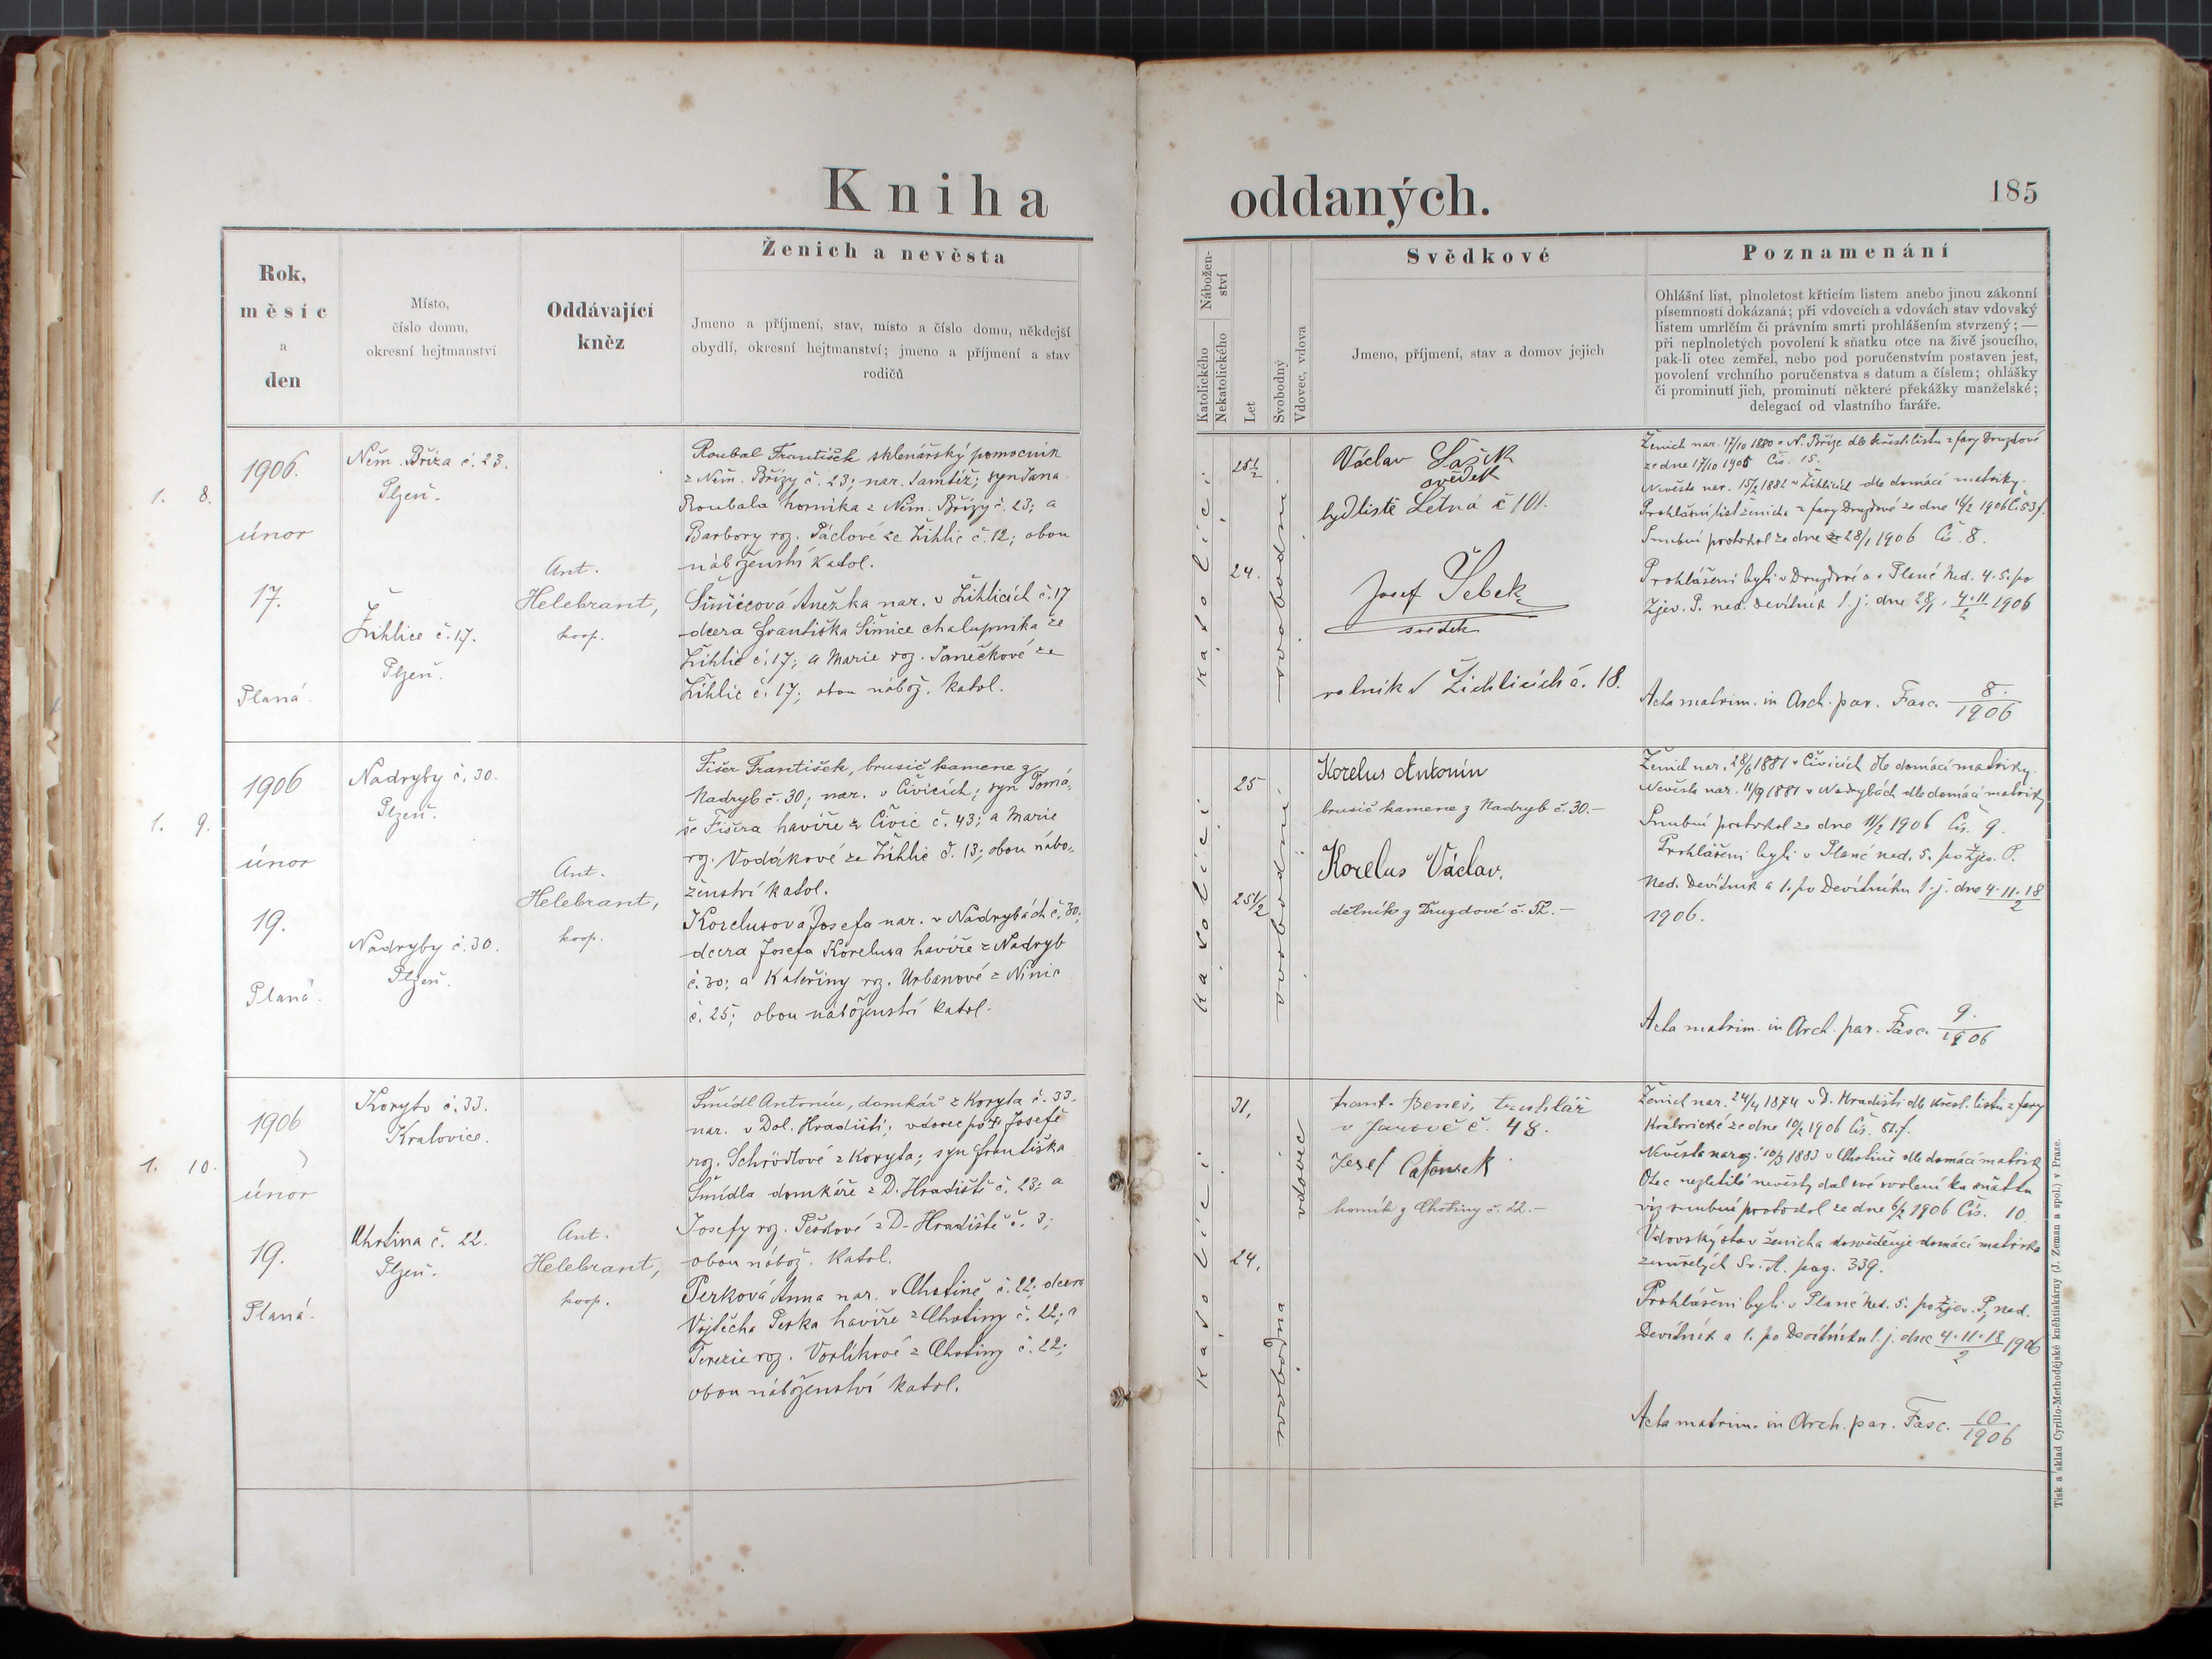 Kniha oddaných.
185
Rok,
měsíc
a
den
Místo,
číslo domu,
okresní hejtmanství
Oddávající
kněz
Ženich a nevěsta
Jmeno a příjmení, stav, místo a číslo domu, někdejší
obydlí, okresní hejtmanství; jmeno a příjmení a stav
rodičů
Nábožen-
ství
Katolického
Nekatolického
Let
Svobodný
Vdovec, vdova
Svědkové
Jmeno, příjmení, stav a domov jejich
Poznamenání
Ohlášní list, plnoletost křticím listem anebo jinou zákonní
písemností dokázaná; při vdovcích a vdovách stav vdovský
listem umrlčím či právním smrti prohlášením stvrzený; —
při neplnoletých povolení k sňatku otce na živě jsoucího,
pak-li otec zemřel, nebo pod poručenstvím postaven jest,
povolení vrchního poručenstva s datum a číslem; ohlášky
či prominutí jich, prominutí některé překážky manželské;
delegací od vlastního faráře.
1. 8.
1906.
únor
17.
Planá.
Něm. Bříza č. 23.
Plzeň.
Žihlice č. 17.
Plzeň.
Ant.
Helebrant,
koop.
Roubal František sklenářský pomocník
z Něm. Břízy č. 23; nar. tamtéž; syn Jana
Roubala horníka z Něm. Břízy č. 23; a
Barbory roz. Páclové ze Žihlic č. 12; obou
náboženství katol.
Šimicová Anežka nar. v Žihlicích č. 17
dcera Františka Šimice chalupníka ze
Žihlic č. 17; a Marie roz. Janečkové ze
Žihlic č. 17; obou nábož. katol.
katolíci
25 1/2
24.
svobodni
Václav Sašek
svědek
bydliště Letná č 101.
Josef Šebek
svědek
rolník v Žichlicích č. 18.
Ženich nar. 17/10 1880 v N. Bříze dle křest. listu z fary Druzdové
ze dne 17/10 1905 Čís. 15.
Nevěsta nar. 15/2 1882 v Žihlicích dle domácí matriky.
Prohlášní list ženicha z fary Druzdové ze dne 16/2 1906
Snubní protokol ze dne 28/1 1906 Čís. 8.
Prohlášeni byli v Druzdové a v Plané ned. 4. 5. po
Zjev. P. ned. Devítník t. j. dne 28/1, 4. 11/2 1906
Acta matrim. in Arch. par. Fasc. 8./1906
1. 9.
1906
únor
19.
Planá.
Nadryby č. 30.
Plzeň.
Nadryby č. 30.
Plzeň.
Ant.
Helebrant,
koop.
Fišer František, brusič kamene z
Nadryb č. 30; nar. v Čivicích; syn Tomá-
še Fišera havíře z Čivic č. 43; a Marie
roz. Vodákové ze Žihlic č. 13; obou nábo-
ženství katol.
Korelusová Josefa nar. v Nadrybách č. 30;
dcera Josefa Korelusa havíře z Nadryb
č. 30; a Kateřiny roz. Urbanové z Nínic
č. 25; obou náboženství katol.
katolíci
25
25 1/2
svobodni
Korelus Antonín
brusič kamene z Nadryb č. 30.—
Korelus Václav.
dělník z Druzdové č. 52.—
Ženich nar. 28/6 1881 v Čivicích dle domácí matriky.
Nevěsta nar. 11/9 1881 v Nadrybách dle domácí matriky
Snubní protokol ze dne 11/2 1906 Čís. 9.
Prohlášeni byli v Plané ned. 5. po Zjev. P.
Ned. Devítník a 1. po Devítníku t. j. dne 4. 11. 18/2
1906.
Acta matrim. in Arch. par. Fasc. 9./1906
1. 10.
1906
únor
19.
Planá.
Koryto č. 33.
Kralovice.
Chotina č. 22.
Plzeň.
Ant.
Helebrant,
koop.
Šmídl Antonín, domkář z Koryta č. 33.
nar. v Dol. Hradišti; vdovec po † Josefě
roz. Schrödlové z Koryta; syn Františka
Šmídla domkáře z D. Hradiště č. 23; a
Josefy roz. Peškové z D. Hradiště č. 3;
obou nábož. katol.
Perková Anna nar. v Chotině č. 22; dcera
Vojtěcha Perka havíře z Chotiny č. 22; a
Terezie roz. Vorlíkové z Chotiny č. 22;
obou náboženství katol.
katolíci
31.
24.
svobodna
vdovec
Frant. Beneš, truhlář
v Janově č. 48.
Josef
horník z Chotiny č. 22.—
Ženich nar. 24/4 1874 v D. Hradišti dle křest. listu z fary
Kralovické ze dne 10/2 1906 Čís. 81.f.
Nevěsta naroz. 10/3 1883 v Chotině dle domácí matriky
Otec nezletilé nevěsty dal své svolení ku sňatku
viz snubní protokol ze dne 6/2 1906 Čís. 10.
Vdovský stav ženicha dosvědčuje domácí matrika
zemřelých Sv. A. pag. 339.
Prohlášeni byli v Plané ned. 5. po Zjev. P., ned.
Devítník a 1. po Devítníku t. j. dne 4. 11. 18/2 1906
Acta matrim. in Arch. par. Fasc. 10/1906
Tisk a sklad Cyrillo-Methodějské knihtiskárny (J. Zeman a spol.) v Praze.